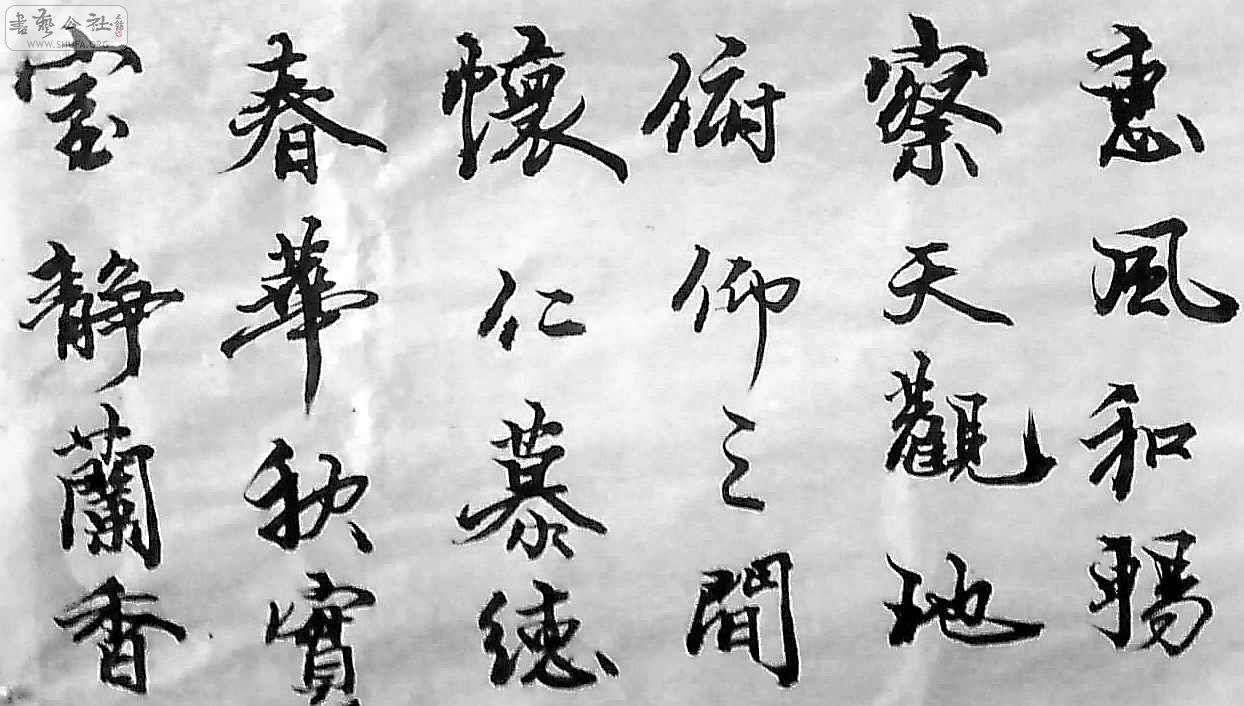 惠風和暢
察天觀地
俯仰之間
懷仁慕德
春華秋實
室靜蘭香
書藝公社
WWW.SHUFA.ORG